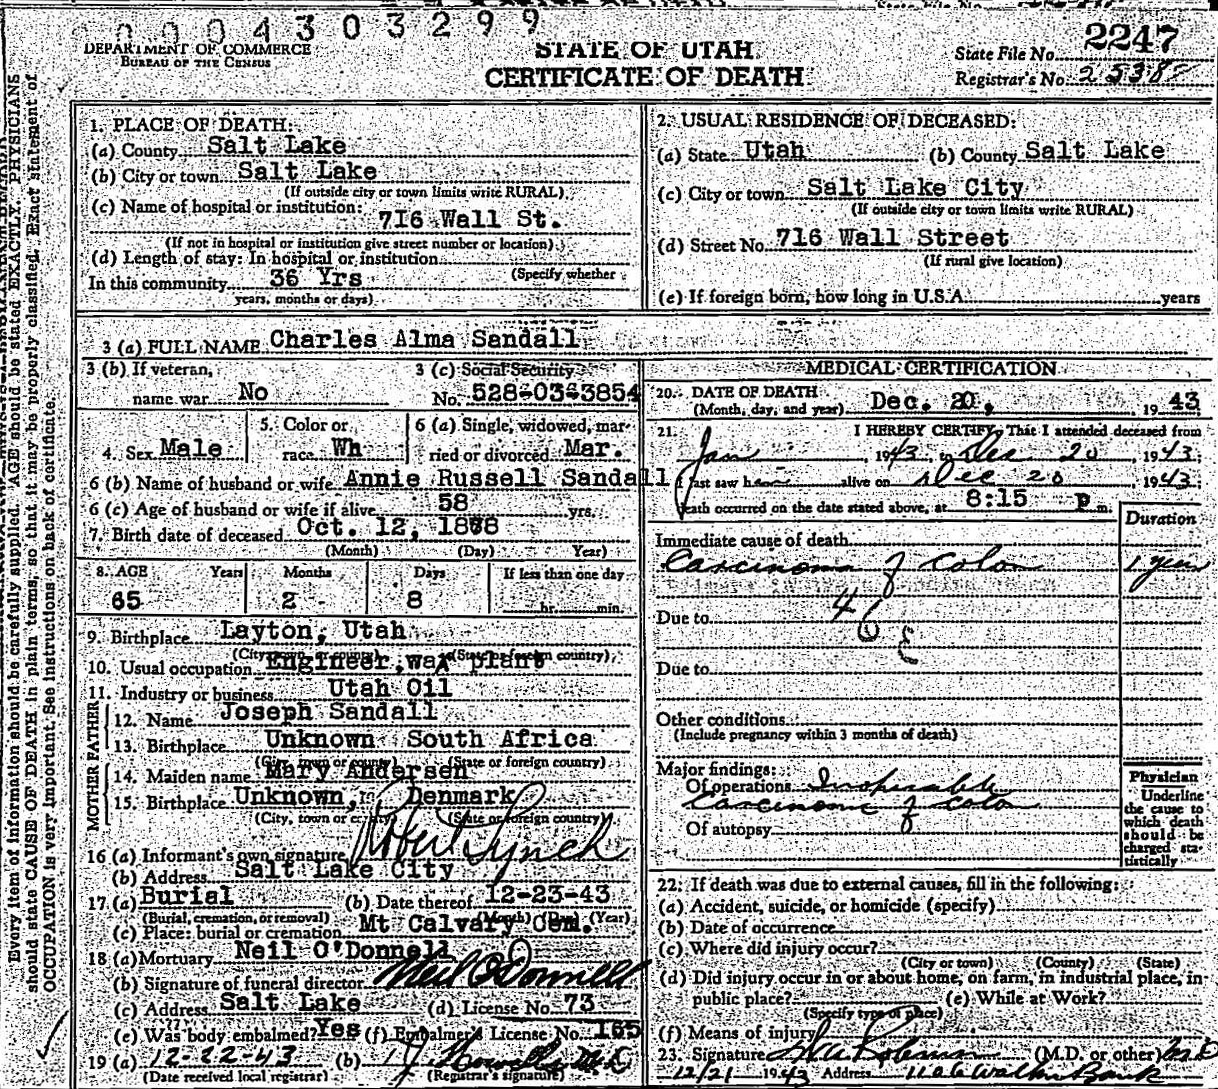 0004303299
DEPARTMENT OF COMMERCE
BUREAU OF THE CENSUS
STATE OF UTAH
CERTIFICATE OF DEATH
State File No. 2247
Registrar's No. 2538
Every item of information should be carefully supplied. AGE should be stated EXACTLY. PHYSICIANS
should state CAUSE OF DEATH in plain terms, so that it may be properly classified. Exact statement of
OCCUPATION is very important. See instructions on back of certificate.
1. PLACE OF DEATH:
(a) County Salt Lake
(b) City or town Salt Lake
(If outside city or town limits write RURAL)
(c) Name of hospital or institution:
716 Wall St.
(If not in hospital or institution give street number or location)
(d) Length of stay: In hospital or institution
(Specify whether
In this community 36 Yrs
years, months or days)
2. USUAL RESIDENCE OF DECEASED:
(a) State Utah (b) County Salt Lake
(c) City or town Salt Lake City
(If outside city or town limits write RURAL)
(d) Street No. 716 Wall Street
(If rural give location)
(e) If foreign born, how long in U.S.A. years
3 (a) FULL NAME Charles Alma Sandall
3 (b) If veteran,
name war No
3 (c) Social Security
No. 528-03-3854
4. Sex Male
5. Color or
race Wh
6 (a) Single, widowed, mar-
ried or divorced Mar.
6 (b) Name of husband or wife Annie Russell Sandall
6 (c) Age of husband or wife if alive 58 yrs.
7. Birth date of deceased Oct. 12, 1878
(Month) (Day) Year)
8. AGE Years Months Days If less than one day
65 2 8 hr. min.
9. Birthplace Layton, Utah
(City, town, or county) (State or foreign country)
10. Usual occupation Engineer, wax plant
11. Industry or business Utah Oil
FATHER
12. Name Joseph Sandall
13. Birthplace Unknown South Africa
(City, town or county) (State or foreign country)
MOTHER
14. Maiden name Mary Andersen
15. Birthplace Unknown, Denmark
(City, town or county) (State or foreign country)
16 (a) Informant's own signature Robert Lynch
(b) Address Salt Lake City
17. (a) Burial (b) Date thereof 12-23-43
(Burial, cremation, or removal) (Month) (Day) (Year)
(c) Place: burial or cremation Mt Calvary Cem.
18 (a) Mortuary Neil O'Donnell
(b) Signature of funeral director Neil O'Donnell
(c) Address Salt Lake (d) License No. 73
(e) Was body embalmed? Yes (f) Embalmer's License No. 165
19 (a) 12-22-43 (b) M.D.
(Date received local registrar) (Registrar's signature)
MEDICAL CERTIFICATION
20. DATE OF DEATH
(Month, day, and year) Dec. 20, 1943
21. I HEREBY CERTIFY, That I attended deceased from
Jan 1943, to Dec 20 1943.
I last saw h alive on Dec 20 1943.
Death occurred on the date stated above, at 8:15 p m.
Duration
Immediate cause of death
Carcinoma of colon 1 year
Due to 46 E
Due to
Other conditions
(Include pregnancy within 3 months of death)
Major findings:
Of operations Inoperable
Carcinoma of colon
Of autopsy
Physician
Underline
the cause to
which death
should be
charged sta-
tistically
22. If death was due to external causes, fill in the following:
(a) Accident, suicide, or homicide (specify)
(b) Date of occurrence
(c) Where did injury occur?
(City or town) (County) (State)
(d) Did injury occur in or about home, on farm, in industrial place, in
public place? (e) While at Work?
(Specify type of place)
(f) Means of injury
23. Signature (M.D. or other) M.D.
12/21 1943 Address 1106 Walker Bank